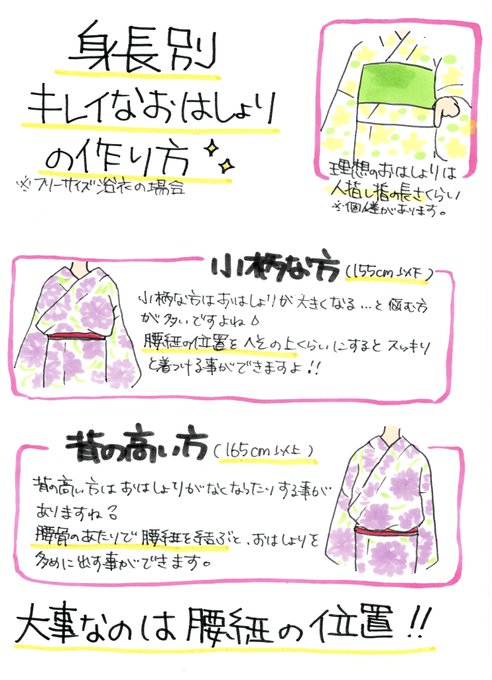 身長別
キレイなおはしょり
の作り方
※フリーサイズ浴衣の場合
理想のおはしょりは
人指し指の長さくらい
※個人差があります。
小柄な方(155cm以下)
小柄な方はおはしょりが大きくなる…と悩む方
が多いですよね
腰紐の位置をへその上くらいにするとスッキリ
と着つける事ができますよ!!
背の高い方(165cm以上)
背の高い方はおはしょりがなくなったりする事が
ありますね
腰骨のあたりで腰紐を結ぶと、おはしょりを
多めに出す事ができます。
大事なのは腰紐の位置!!